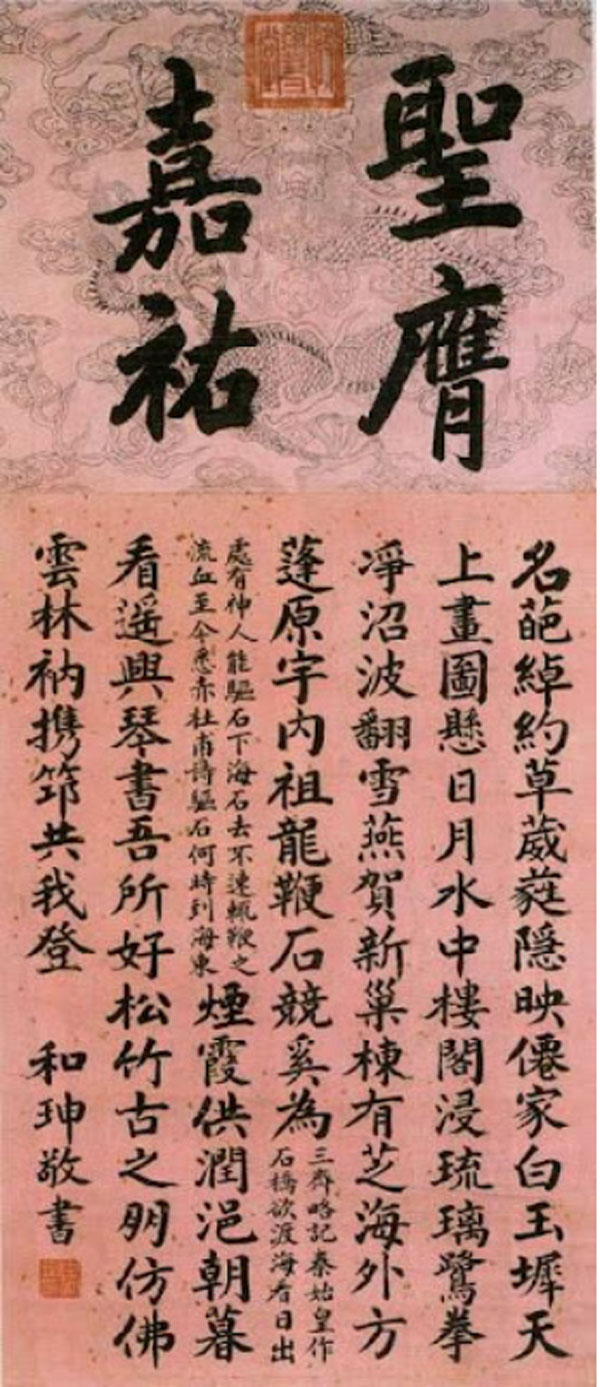 聖膺
嘉祐
名葩綽約草葳蕤隱映僊家白玉墀天
上畫圖懸日月水中樓閣浸琉璃鷺拳
凈沼波翻雪燕賀新巢棟有芝海外方
蓬原宇內祖龍鞭石競奚為
三齊略記秦始皇作
石橋欲渡海看日出
處有神人能驅石下海石去不速輒鞭之
流血至今悉赤杜甫詩驅石何時到海東
煙霞供潤浥朝暮
看遙興琴書吾所好松竹古之朋仿佛
雲林衲携筇共我登 和珅敬書